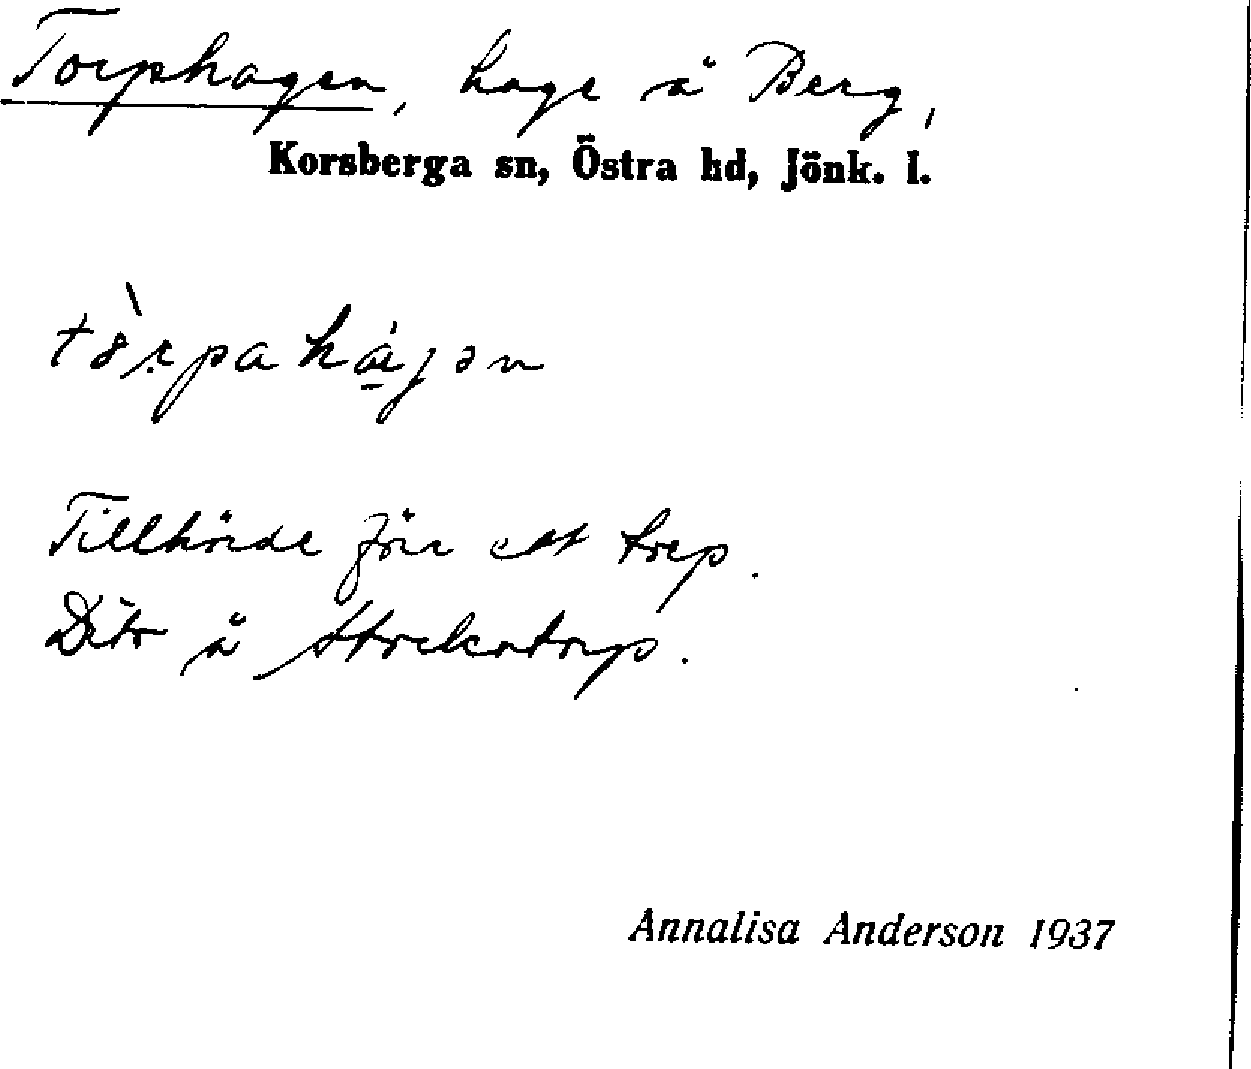 Torphagen, hage å Berg,
Korsberga sn, Östra hd, Jönk. l.
tòrpahágən
Tillhörde förr ett torp.
Dito å Stockatorp.
Annalisa Anderson 1937